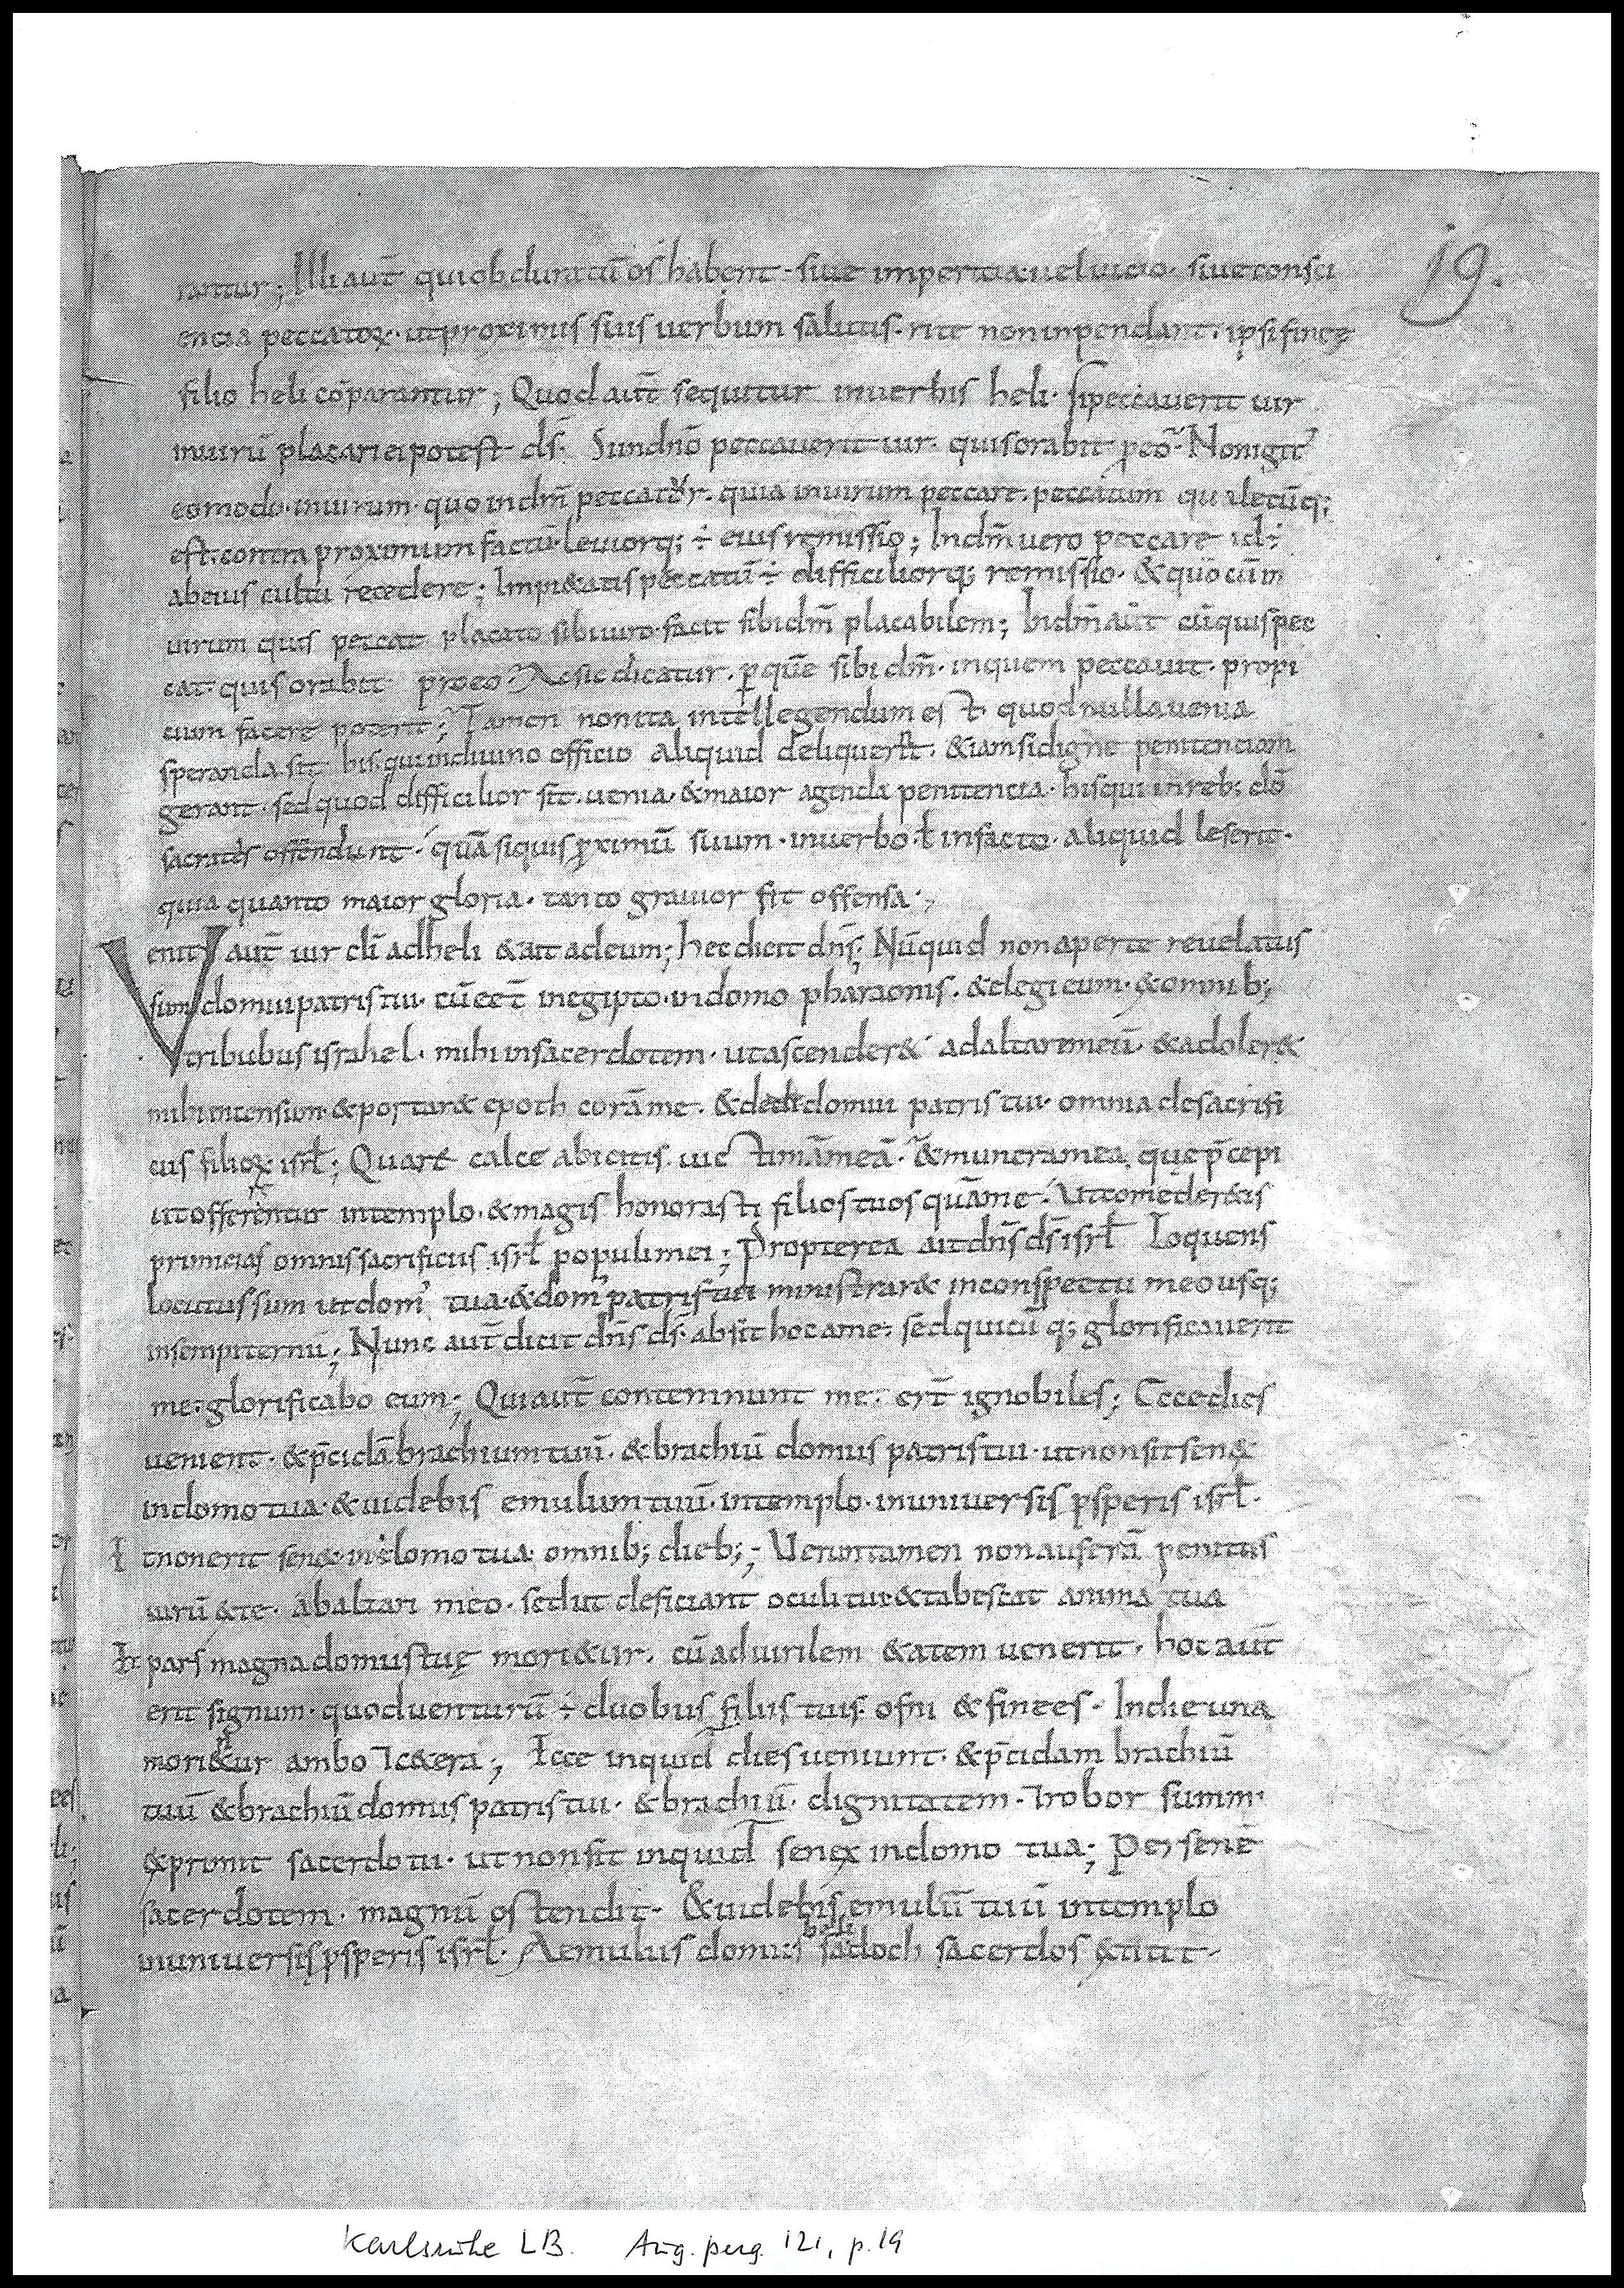 19.
rantur; Illi aut̄ qui obduratū os habent · siue imperitia uel uicio · siue consci
encia peccatoꝝ · ut proximis suis uerbum salutis · rite non inpendant · ipsi fineę
filio heli cōparantur; Quod aut̄ sequitur in uerbis heli · si peccauerit uir
in uirū placari ei potest ds̄ · Si in dn̄o peccauerit uir · quis orabit ꝓ eo · Non igit̃
eo modo · in uirum · quo in dm̄ peccatur · quia in uirum peccare · peccatum qualecūq;
est · contra proximum factū · leuiorq; ÷ eius remissio; In dm̄ uero peccare id ÷
ab eius cultu recedere; Impi&atis peccatū ÷ difficiliorq; remissio · & quō cum in
uirum quis peccat placato sibi uiro · facit sibi dm̄ placabilem; In dm̄ aut̄ cū quis pec
cat · quis orabit pro eo · Ac sic dicatur · ꝑ quē sibi dm̄ · in quem peccauit · propi
cium facere poterit; Tamen non ita intellegendum est · quod nulla uenia
speranda sit his qui in diuino officio aliquid deliquerint · &iam si digne penitenciam
gerant · sed quod difficilior sit · uenia · & maior agenda penitencia · his qui in reb; dō
sacratis offendunt · quā si quis ꝓximū suum · in uerbo · ł in facto · aliquid leserit ·
quia quanto maior gloria · tanto grauior fit offensa ·,
Venit aut̄ uir dī ad heli & ait ad eum; hec dicit dn̄s; Nūquid non aperte reuelatus
sum domui patris tui · cū eet̄ in egipto · in domo pharaonis · & elegi eum · & omnib;
tribubus israhel · mihi in sacerdotem · ut ascender& ad altare meū · & adoler&
mihi incensum · & portar& epoth corā me · & dedi domui patris tui · omnia de sacrifi
ciis filioꝝ isrł; Quare calce abicitis uictimā meā · & munera mea · quę p̄cepi
ut offerrentur in templo · & magis honorasti filios tuos quā me · Ut comeder&is
primicias omnis sacrificiis isrł populi mei; Propterea ait dn̄s ds̄ isrł Loquens
locutus sum ut dom' tua · & dom' patris tui ministrar& in conspectu meo usq;
in sempiternū; Nunc aut̄ dicit dn̄s ds̄ · absit hoc a me · sed quicū q; glorificauerit
me · glorificabo eum; Qui aut̄ contemnunt me · er̄t ignobiles; Ecce dies
uenient · & p̄cidā brachium tuū · & brachiū domus patris tui · ut non sit sen&
in domo tua · & uidebis emulum tuū · in templo · in uniuersis ꝓsperis isrł ·
Et non erit sen& · in domo tua omnib; dieb;; Ueruntamen non auferā penitus
uirū & te · ab altari meo · sed ut deficiant oculi tui & tabescat anima tua
Et pars magna domus tuę mori&ur · cū ad uirilem &atem uenerit · hoc aut̄
erit signum · quod uenturū ÷ duobus filiis tuis · ofni & finees · In die una
mori&ur ambo & c&era; Ecce inquid dies ueniunt · & p̄cidam brachiū
tuū & brachiū domus patris tui · & brachiū · dignitatem · & robor summi
& primi sacerdotii · ut non sit inquid senex in domo tua; Per senē
sacerdotem · magnū ostendit · & uidebis emulū tuū in templo
in uniuersis ꝓsperis isrł · Aemulus domus heli sadoch sacerdos extitit ·
Karlsruhe LB. Aug. perg. 121, p. 19